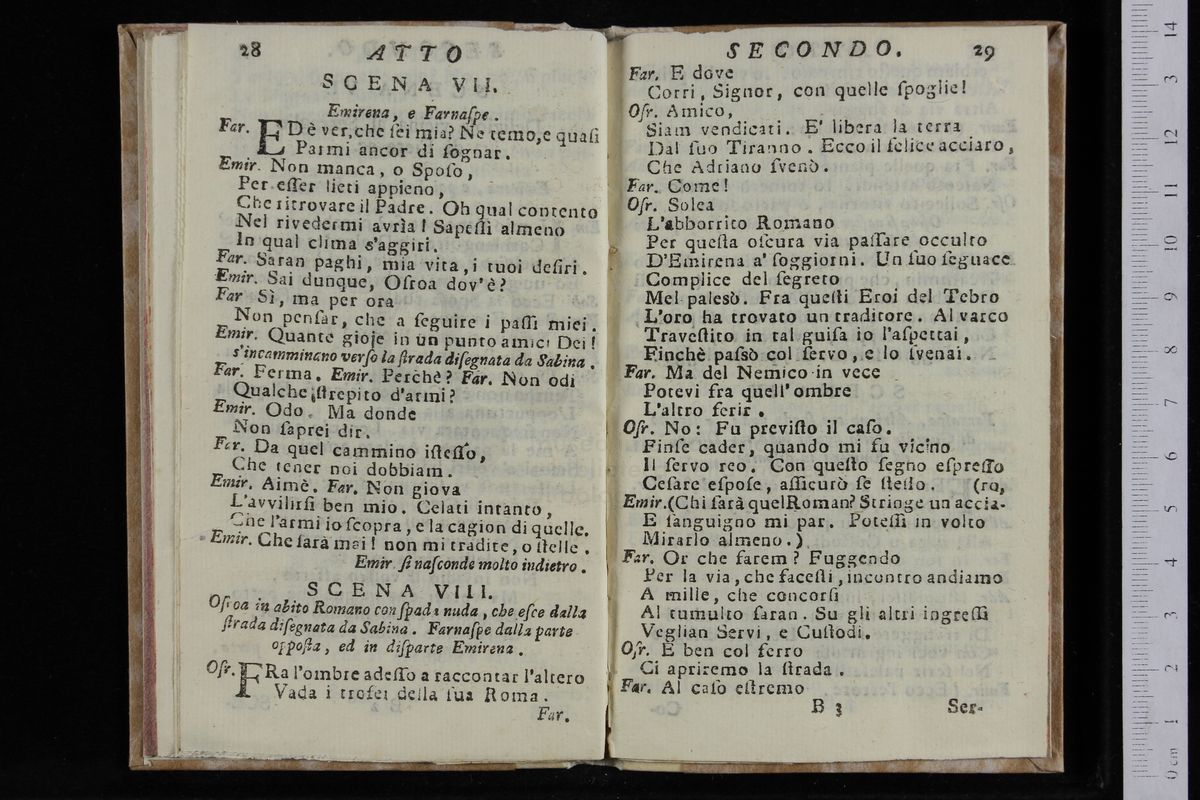 28 ATTO
SCENA VII.
Emirena, e Farnaſpe.
Far. EDè ver, che ſei mia? Ne temo, e quaſi
Parmi ancor di ſognar.
Emir. Non manca, o Spoſo,
Per eſſer lieti appieno,
Che ritrovare il Padre. Oh qual contento
Nel rivedermi avrìa! Sapeſſi almeno
In qual clima s'aggiri.
Far. Saran paghi, mia vita, i tuoi deſiri.
Emir. Sai dunque, Oſroa dov'è?
Far Sì, ma per ora
Non penſar, che a ſeguire i paſſi miei.
Emir. Quante gioje in un punto amici Dei!
s'incamminano verſo la ſtrada diſegnata da Sabina.
Far. Ferma. Emir. Perchè? Far. Non odi
Qualche ſtrepito d'armi?
Emir. Odo. Ma donde
Non ſaprei dir.
Far. Da quel cammino iſteſſo,
Che tener noi dobbiam.
Emir. Aimè. Far. Non giova
L'avvilirſi ben mio. Celati intanto,
Che l'armi io ſcopra, e la cagion di quelle.
Emir. Che ſarà mai! non mi tradite, o ſtelle.
Emir. ſi naſconde molto indietro.
SCENA VIII.
Oſroa in abito Romano con ſpada nuda, che eſce dalla
ſtrada diſegnata da Sabina. Farnaſpe dalla parte
oppoſta, ed in diſparte Emirena.
Oſr. ERa l'ombre adeſſo a raccontar l'altero
Vada i trofei della ſua Roma.
Far.
SECONDO. 29
Far. E dove
Corri, Signor, con quelle ſpoglie!
Oſr. Amico,
Siam vendicati. E' libera la terra
Dal ſuo Tiranno. Ecco il felice acciaro,
Che Adriano ſvenò.
Far. Come!
Oſr. Solea
L'abborrito Romano
Per queſta oſcura via paſſare occulto
D'Emirena a' ſoggiorni. Un ſuo ſeguace
Complice del ſegreto
Mel palesò. Fra queſti Eroi del Tebro
L'oro ha trovato un traditore. Al varco
Traveſtito in tal guiſa io l'aſpettai,
Finchè paſsò col ſervo, e lo ſvenai.
Far. Ma del Nemico in vece
Potevi fra quell'ombre
L'altro ferir.
Oſr. No: Fu previſto il caſo.
Finſe cader, quando mi fu vicino
Il ſervo reo. Con queſto ſegno eſpreſſo
Ceſare eſpoſe, aſſicurò ſe ſteſſo. (ro,
Emir. (Chi ſarà quel Roman? Stringe un accia-
E ſanguigno mi par. Poteſſi in volto
Mirarlo almeno.)
Far. Or che farem? Fuggendo
Per la via, che faceſti, incontro andiamo
A mille, che concorſi
Al tumulto ſaran. Su gli altri ingreſſi
Veglian Servi, e Cuſtodi.
Oſr. E ben col ferro
Ci apriremo la ſtrada.
Far. Al caſo eſtremo
B 3 Ser-
14
13
12
11
10
9
8
7
6
5
4
3
2
1
0 cm